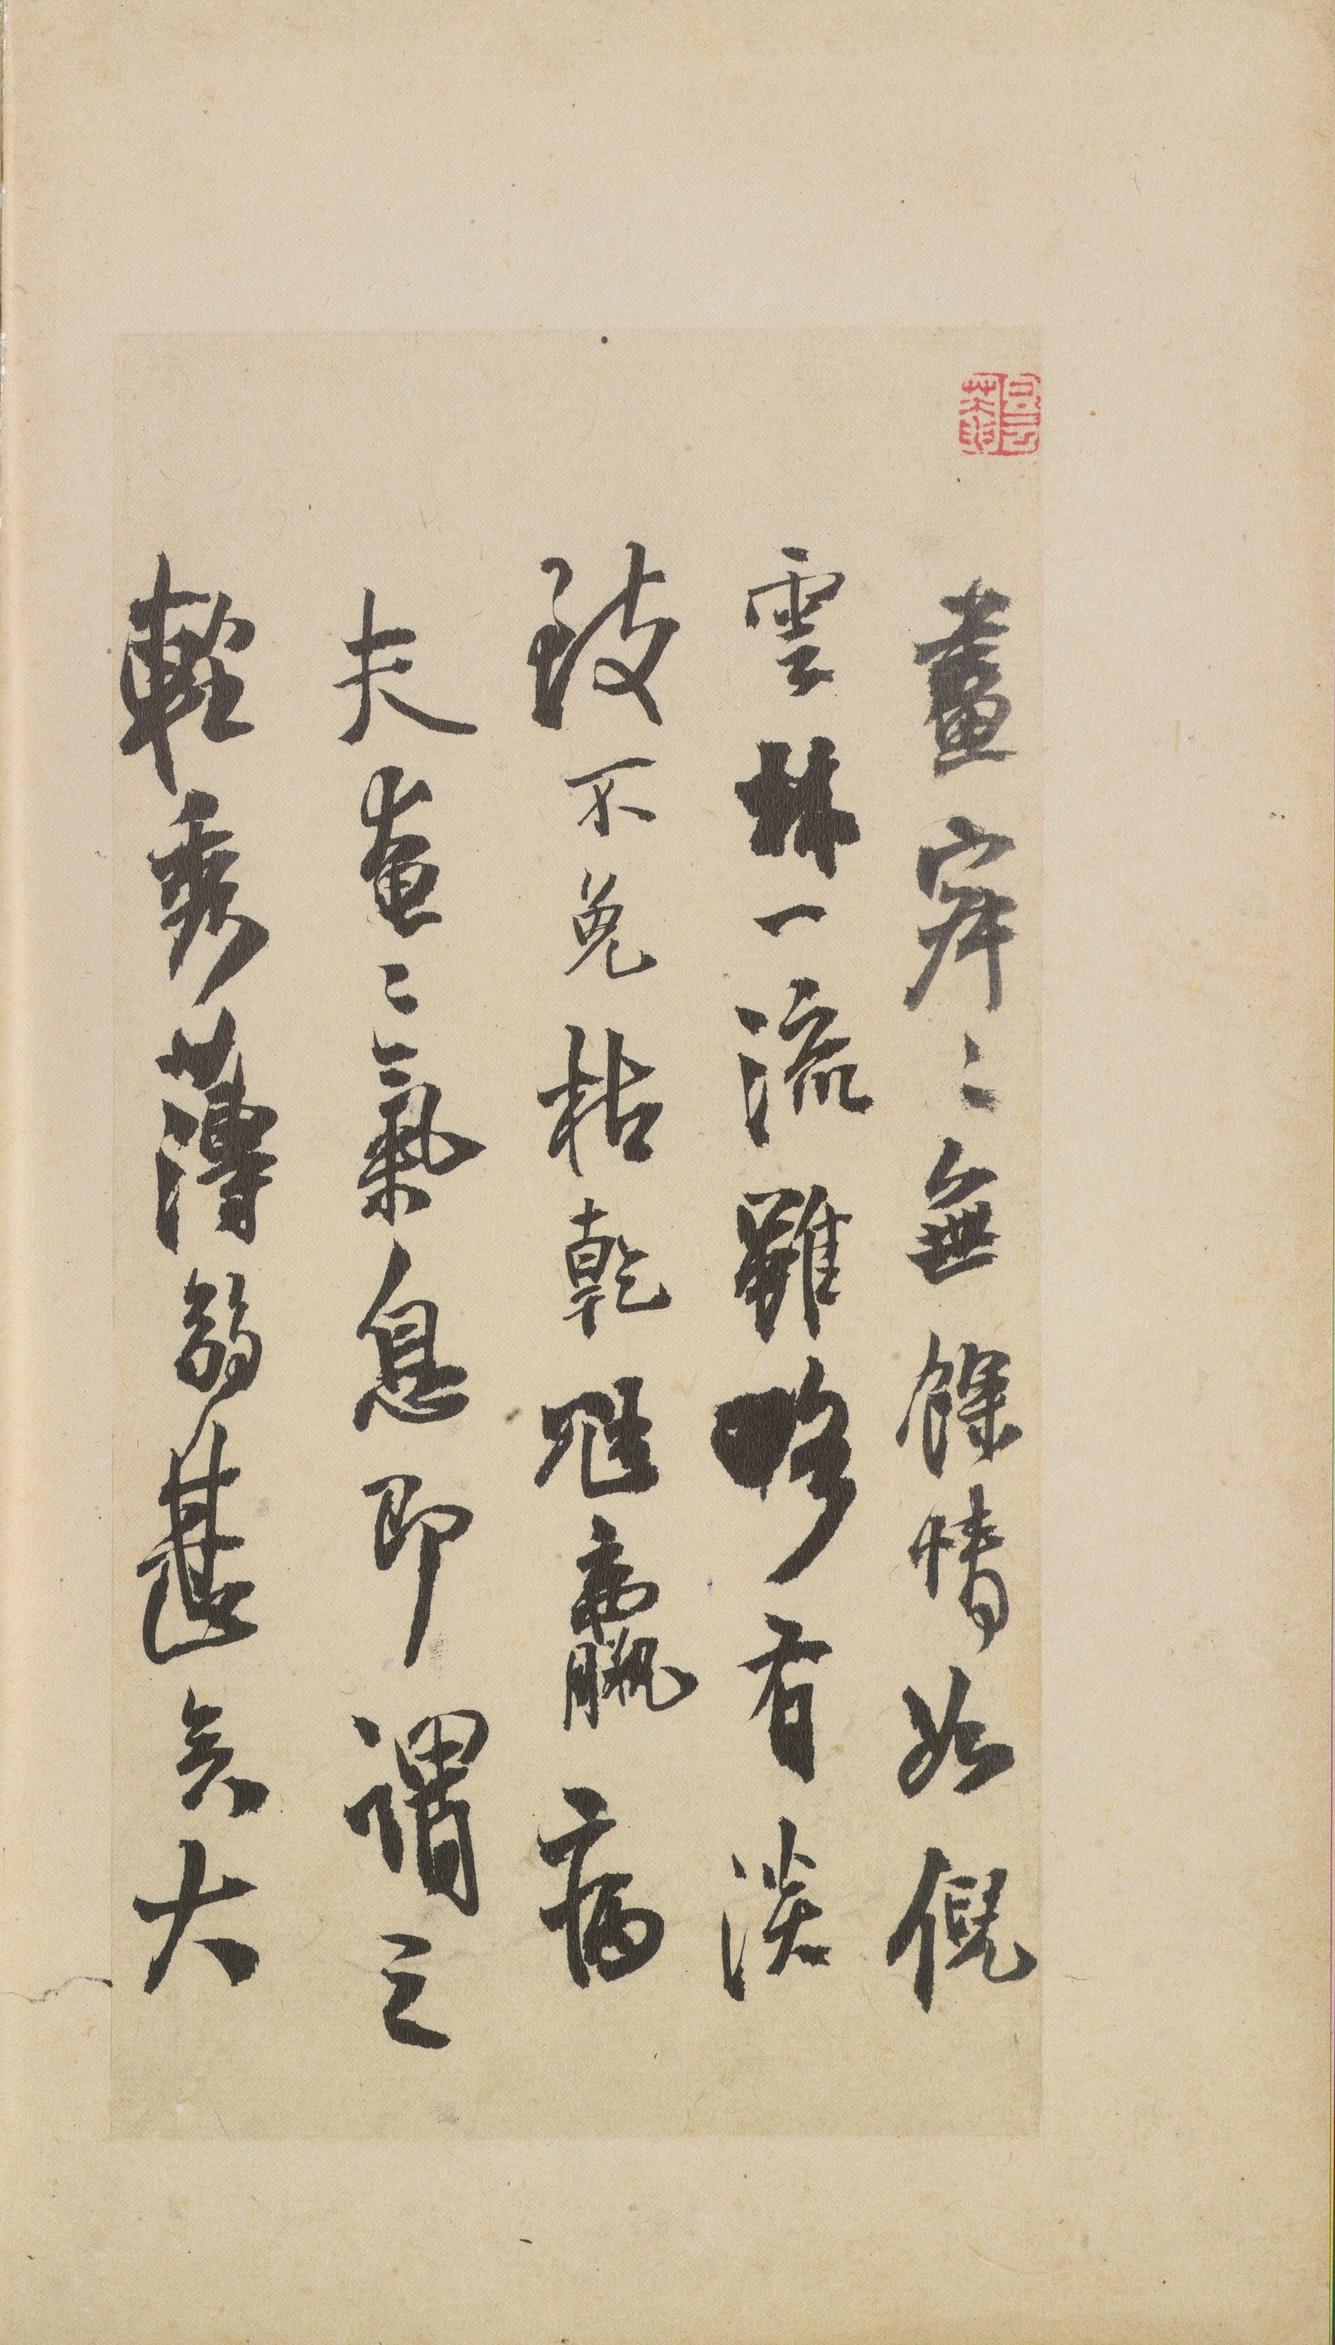 畫寂〻無餘情如倪
雲林一流雖略有淡
致不免枯乾尫羸病
夫奄〻氣息即謂之
輕秀薄弱甚矣大